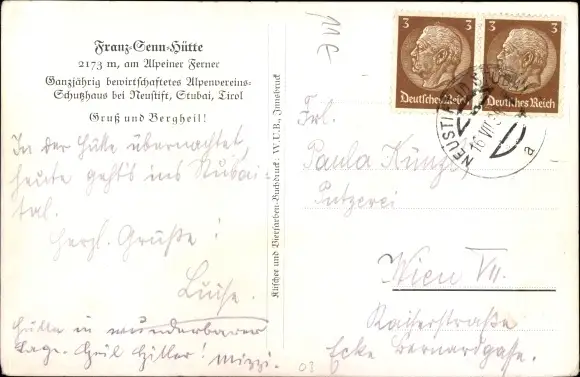 Franz-Senn-Hütte
2173 m, am Alpeiner Ferner
Ganzjährig bewirtschaftetes Alpenvereins-
Schutzhaus bei Neustift, Stubai, Tirol
Gruß und Bergheil!
In der Hütte übernachtet,
heute geht's ins Stubai-
tal.
Herzl. Grüße!
Luise.
Hütte in wunderbarer
Lage. Heil Hitler! Mizzi.
Klischee und Vierfarben-Buchdruck: W.U.B., Innsbruck
3 3
Deutsches Reich Deutsches Reich
NEUSTIFT
16 VII
a
Frl.
Paula
Putzerei
Wien VII.
Kaiserstraße
Ecke Bernardgasse.